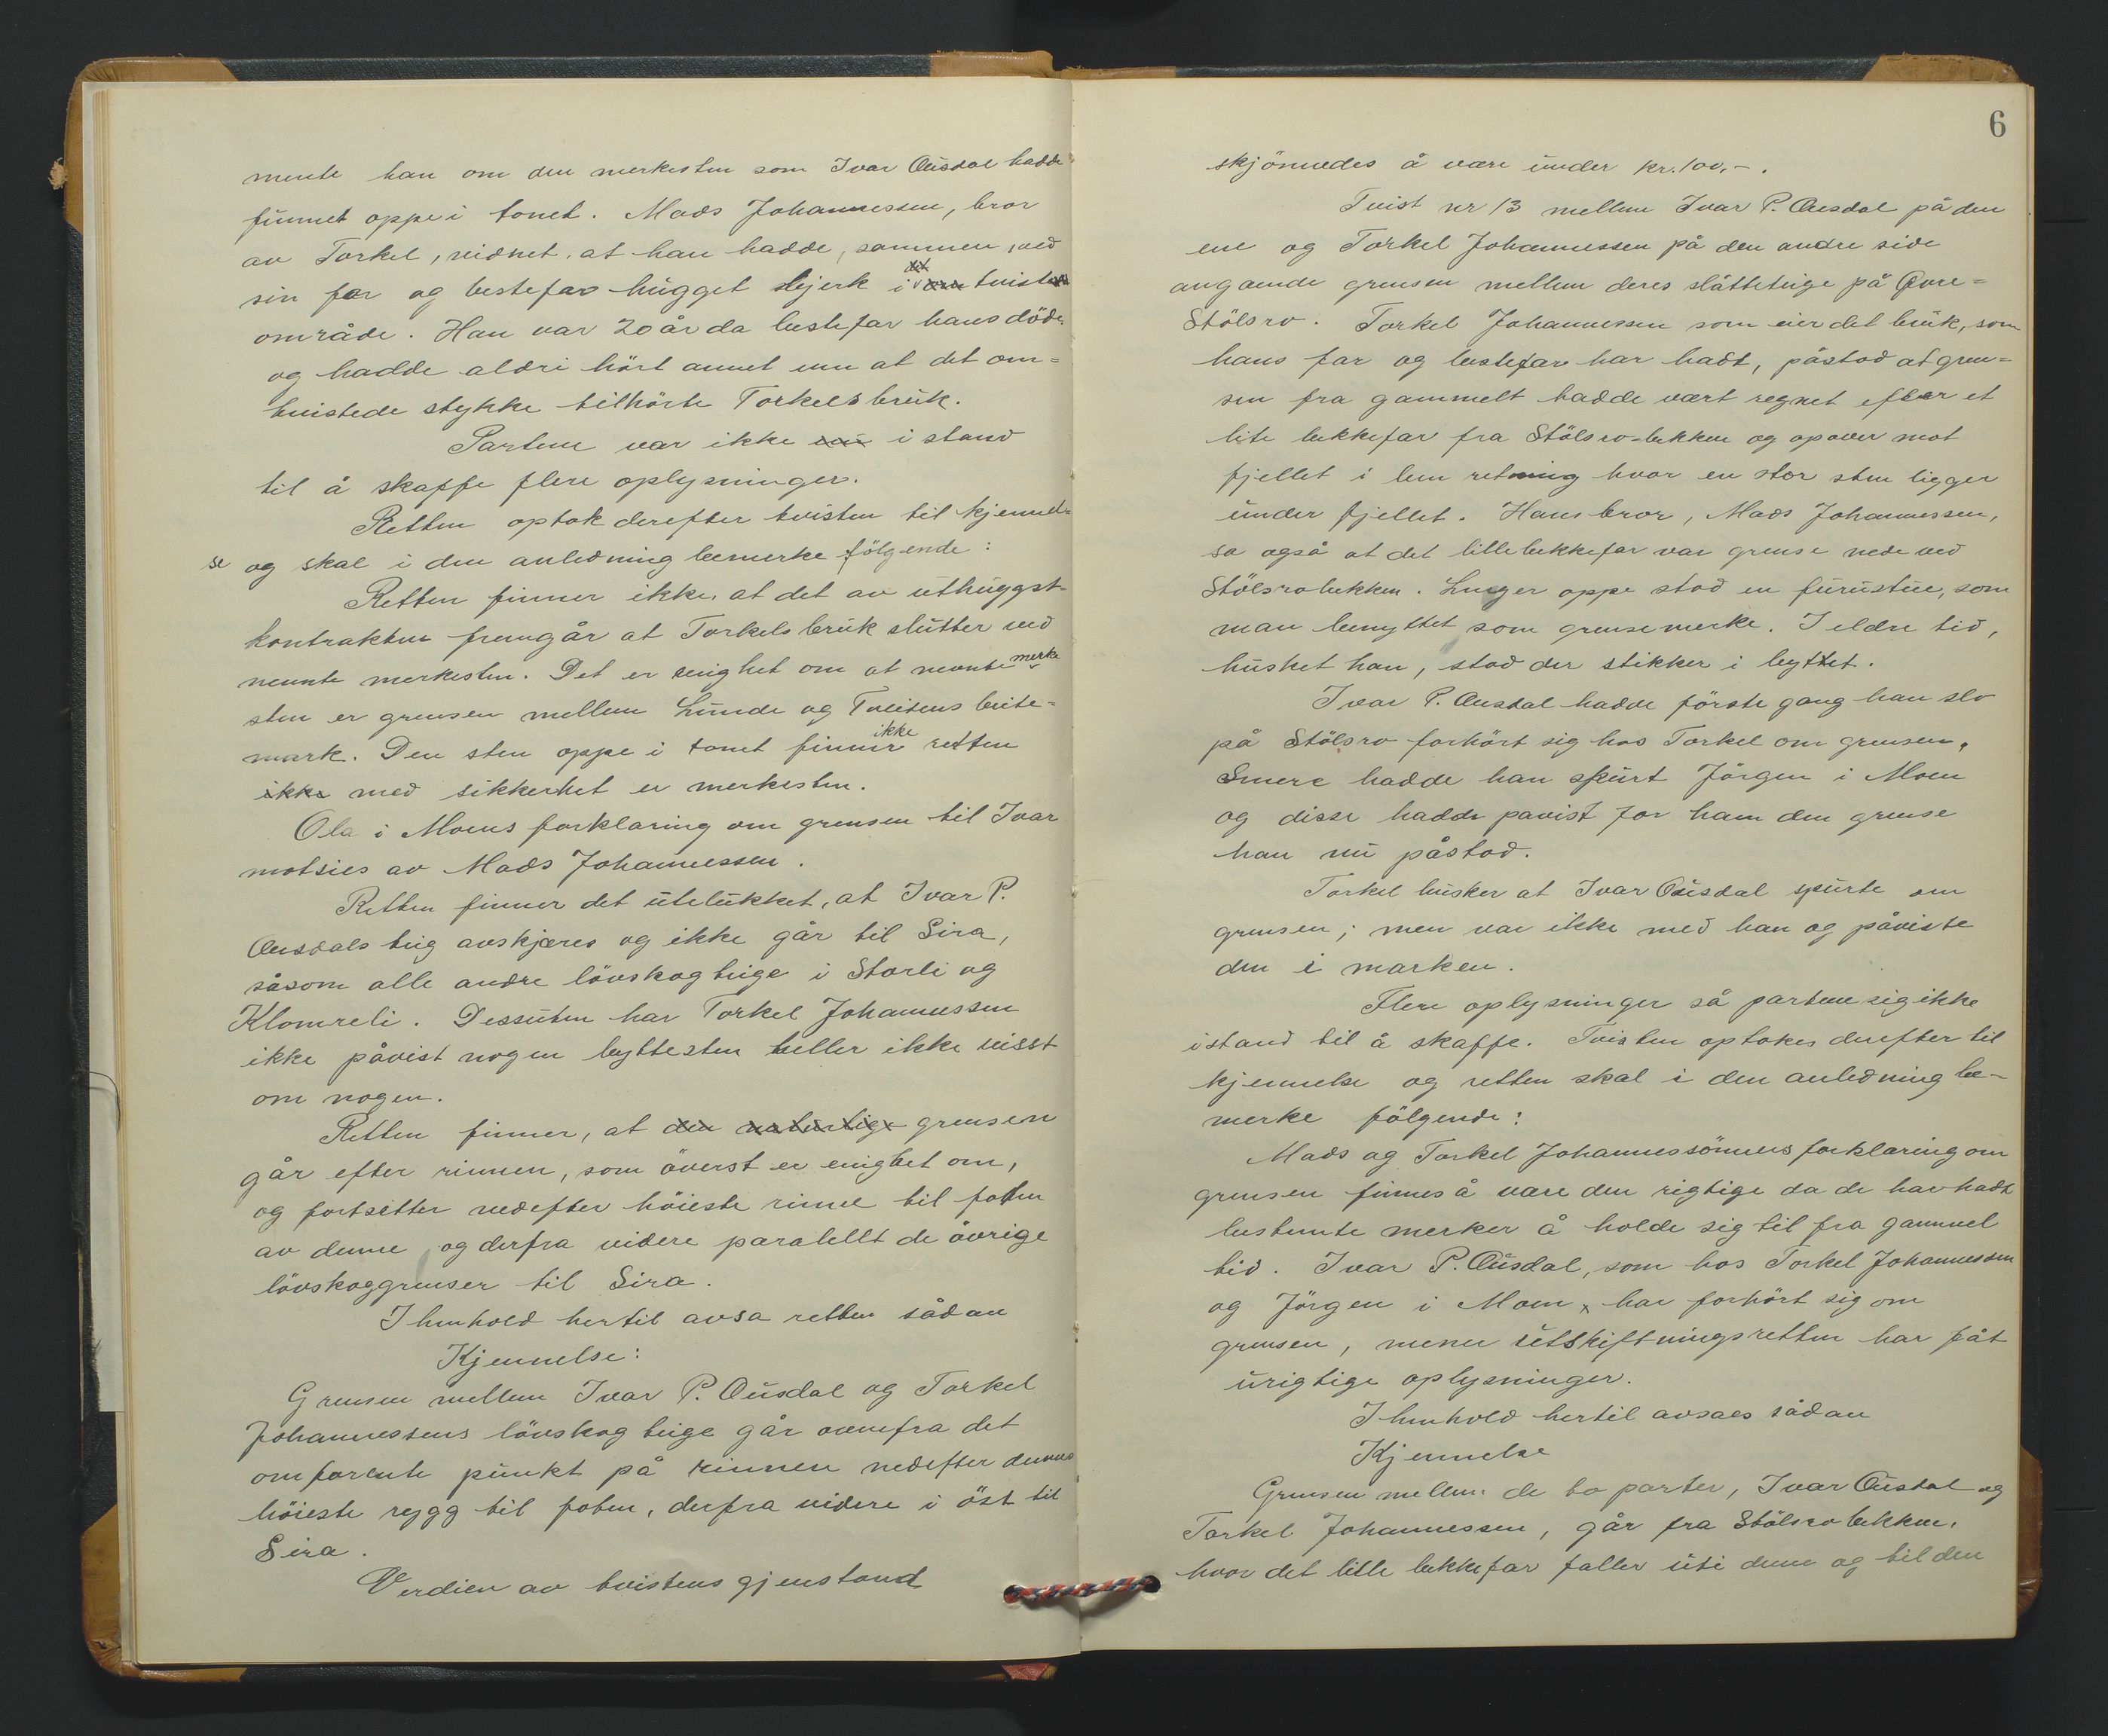 mente han om den merkesten som Ivar Ousdal hadde
funnet oppe i tonet. Mads Johannessen, bror
av Torkel, vidnet, at han hadde, sammen ved
sin far og bestefar hugget bjerk i tvist
område. Han var 20 år da bestefar hans döde,
og hadde aldri hört annet enn at det om=
tvistede stykke tilhörte Torkels bruk.
Partene var ikke i stand
til å skaffe flere oplysninger.
Retten optok derefter tvisten til kjennel-
se og skal i den anledning bemerke fölgende:
Retten finner ikke, at det av uthuggst-
kontrakten fremgår at Torkels bruk slutter ved
nevnte merkesten. Det er enighet om at nevnte merke
sten er grensen mellem Lunde og Tveitens beite=
mark. Den sten oppe i tonet finner ikke retten
ikke med sikkerhet er merkesten.
Ola i Moens forklaring om grensen til Ivar
motsies av Mads Johannessen.
Retten finner det utelukket, at Ivar P.
Ousdals teig avskjæres og ikke går til Sira,
såsom alle andre lövskogteige i Storli og
Klomreli. Dessuten har Torkel Johannessen
ikke påvist nogen byttesten heller ikke visst
om nogen.
Retten finner, at den naturlige grensen
går efter rinnen, som överst er enighet om,
og fortsetter nedefter höieste rinne til foten
av denne og derfra videre paralellt de övrige
lövskoggrenser til Sira.
I henhold hertil avsa retten sådan
Kjennelse:
Grensen mellem Ivar P. Ousdal og Torkel
Johannessens lövskog teige går ovenfra det
omforente punkt på rinnen nedefter dennes
höieste rygg til foten, derfra videre i öst til
Sira.
Verdien av tvistens gjenstand
6
skjönnedes å være under kr. 100,-.
Tvist nr 13 mellem Ivar P. Ousdal på den
ene og Torkel Johannessen på den andre side
angaende grensen mellem deres slåtteteige på Övre=
Stölsro. Torkel Johannessen som eier det bruk, som
hans far og bestefar har hadt, påstod at gren=
sen fra gammelt hadde vært regnet efter et
lite bekkefar fra Stölsro-bekken og opover mot
fjellet i lem retning hvor en stor sten ligger
under fjellet. Hans bror, Mads Johannessen,
sa også at det lille bekkefar var grense nede ved
Stölsrobekken. Lenger oppe stod en furustue, som
man benyttet som grensemerke. I eldre tid,
husket han, stod der stikker i byttet.
Ivar P. Ousdal hadde förste gang han slo
på Stölsro forhört sig hos Torkel om grensen.
Senere hadde han spurt Jörgen i Moen
og disse hadde pavist for ham den grense
han nu påstod.
Torkel husker at Ivar Ousdal spurte om
grensen; men var ikke med han og påviste
den i marken.
Flere oplysninger så partene sig ikke
istand til å skaffe. Tvisten optokes derefter til
kjennelse og retten skal i den anledning be-
merke fölgende:
Mads og Torkel Johannessönners forklaring om
grensen finnes å være den rigtige da de har hadt
bestemte merker å holde sig til fra gammel
tid. Ivar P. Ousdal, som hos Torkel Johannessen
og Jörgen i Moen, har forhört sig om
grensen, mener utskiftningsretten har fåt
urigtige oplysninger.
I henhold hertil avsaes sådan
Kjennelse
Grensen mellem de to parter, Ivar Ousdal og
Torkel Johannessen, går fra Stölsro bekken,
hvor det lille bekkefar faller uti denne og til den